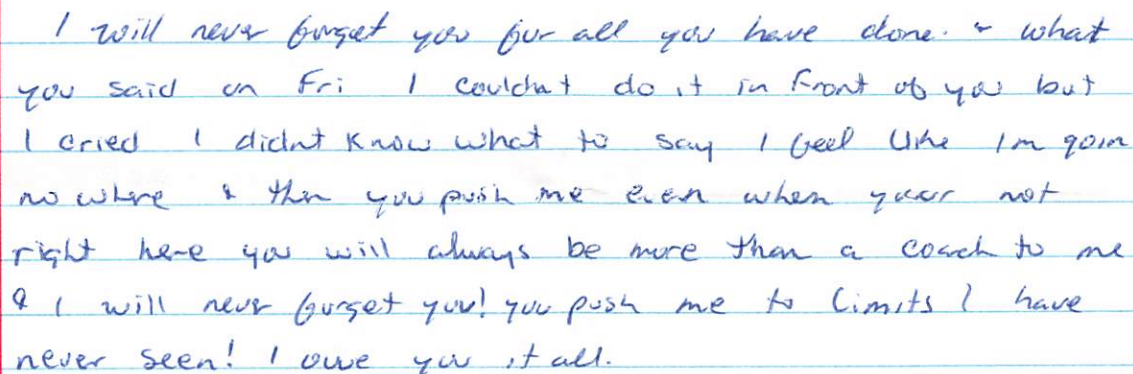 I will never forget you for all you have done. & what
you said on Fri I couldnt do it in front of you but
I cried I didnt know what to say I feel like Im goin
no where & then you push me even when your not
right here you will always be more than a coach to me
& I will never forget you! you push me to limits I have
never seen! I owe you it all.